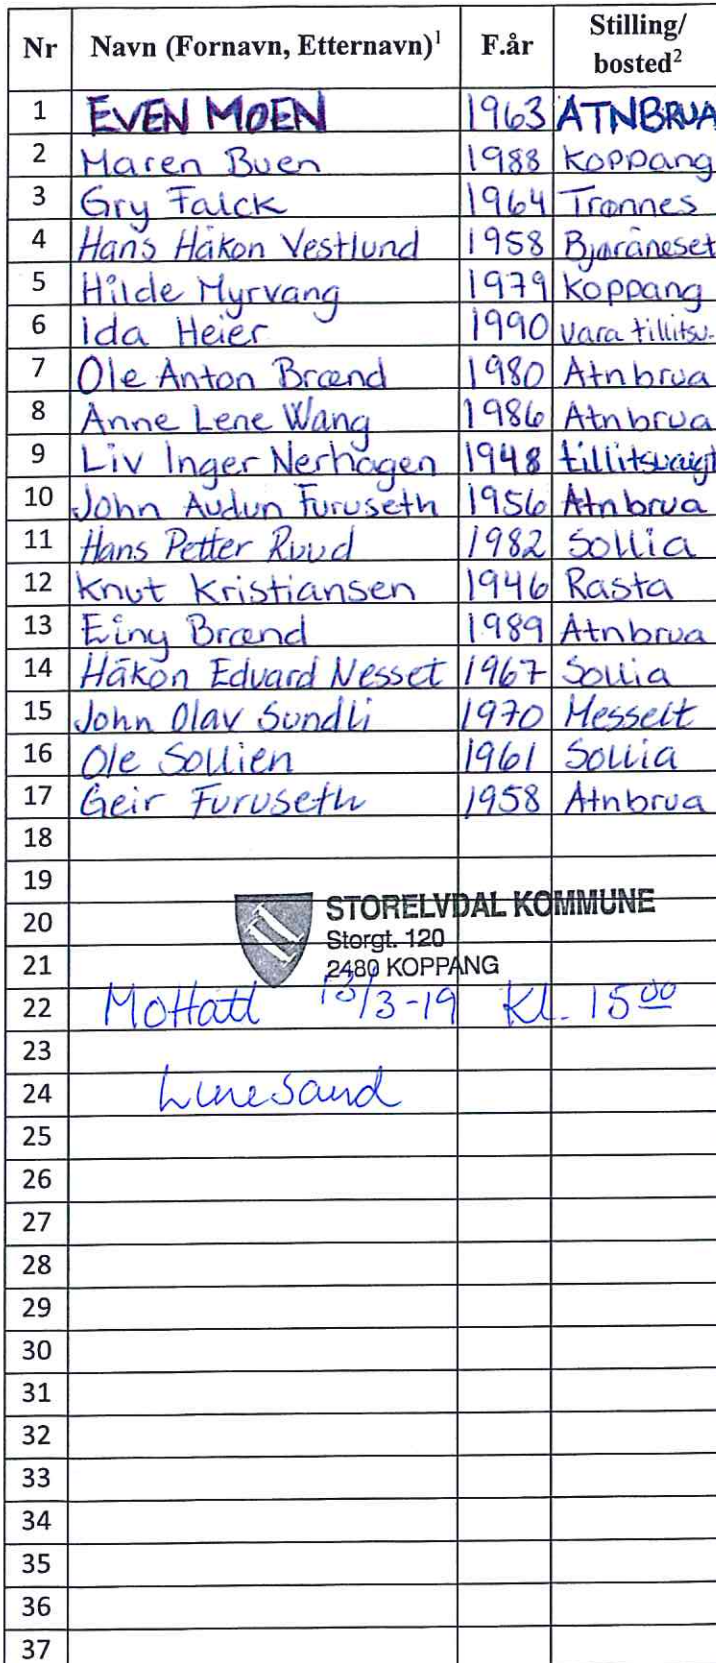 Nr Navn (Fornavn, Etternavn)¹ F.år Stilling/
bosted²
1 EVEN MOEN 1963 ATNBRUA
2 Maren Buen 1988 Koppang
3 Gry Falck 1964 Trønnes
4 Hans Håkon Vestlund 1958 Bjøråneset
5 Hilde Myrvang 1979 Koppang
6 Ida Heier 1990 Vara tillitsv.
7 Ole Anton Brænd 1980 Atnbrua
8 Anne Lene Wang 1986 Atnbrua
9 Liv Inger Nerhagen 1948 tillitsvalgt
10 John Audun Furuseth 1956 Atnbrua
11 Hans Petter Ruud 1982 Sollia
12 Knut Kristiansen 1946 Rasta
13 Einy Brænd 1989 Atnbrua
14 Håkon Eduard Nesset 1967 Sollia
15 John Olav Sundli 1970 Messelt
16 Ole Sollien 1961 Sollia
17 Geir Furuseth 1958 Atnbrua
18
19
20 STORELVDAL KOMMUNE
Storgt. 120
21 2480 KOPPANG
22 Mottatt 13/3-19 Kl. 15 00
23
24 Line Sand
25
26
27
28
29
30
31
32
33
34
35
36
37